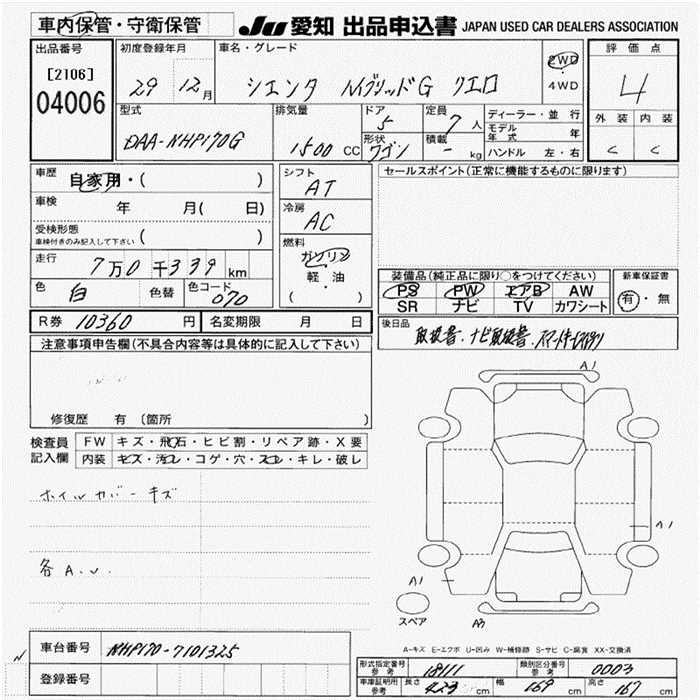 車内保管・守衛保管
JU 愛知 出品申込書 JAPAN USED CAR DEALERS ASSOCIATION
出品番号
[2106]
04006
初度登録年月
29 12月
車名・グレード
シエンタ ハイブリッドG クエロ
2WD
・
4WD
評価点
4
外装 内装
C C
型式
DAA-NHP170G
排気量
1500 CC
ドア
5
形状
ワゴン
定員
7人
積載
- kg
ディーラー・並行
モデル年式 年
ハンドル 左・右
車歴
自家用・( )
車検
年 月( 日)
受検形態
車検付きのみ記入して下さい ( )
走行
7万0千339km
色
白
色替
色コード
070
シフト
AT
冷房
AC
燃料
ガソリン
軽・油
( )
セールスポイント(正常に機能するものに限ります)
装備品(純正品に限り○をつけてください)
PS PW エアB AW
SR ナビ TV カワシート
新車保証書
有・無
R券 10360 円
名変期限 月 日
後日品
取扱書・ナビ取扱書・
注意事項申告欄(不具合内容等は具体的に記入して下さい)
修復歴 有 (箇所 )
検査員記入欄
FW キズ・飛石・ヒビ割・リペア跡・X要
内装 キズ・汚レ・コゲ・穴・スレ・キレ・破レ
ホイルカバーキズ
各A.U.
A1
A1
A1
A3
スペア
A-キズ E-エクボ U-凹み W-補修跡 S-サビ C-腐食 XX-交換済
N
車台番号 NHP170-7101325
登録番号
形式指定番号 参考 18111
類別区分番号 参考 0003
車庫証明用 参考 長さ 423 cm 幅 169 cm 高さ 167 cm